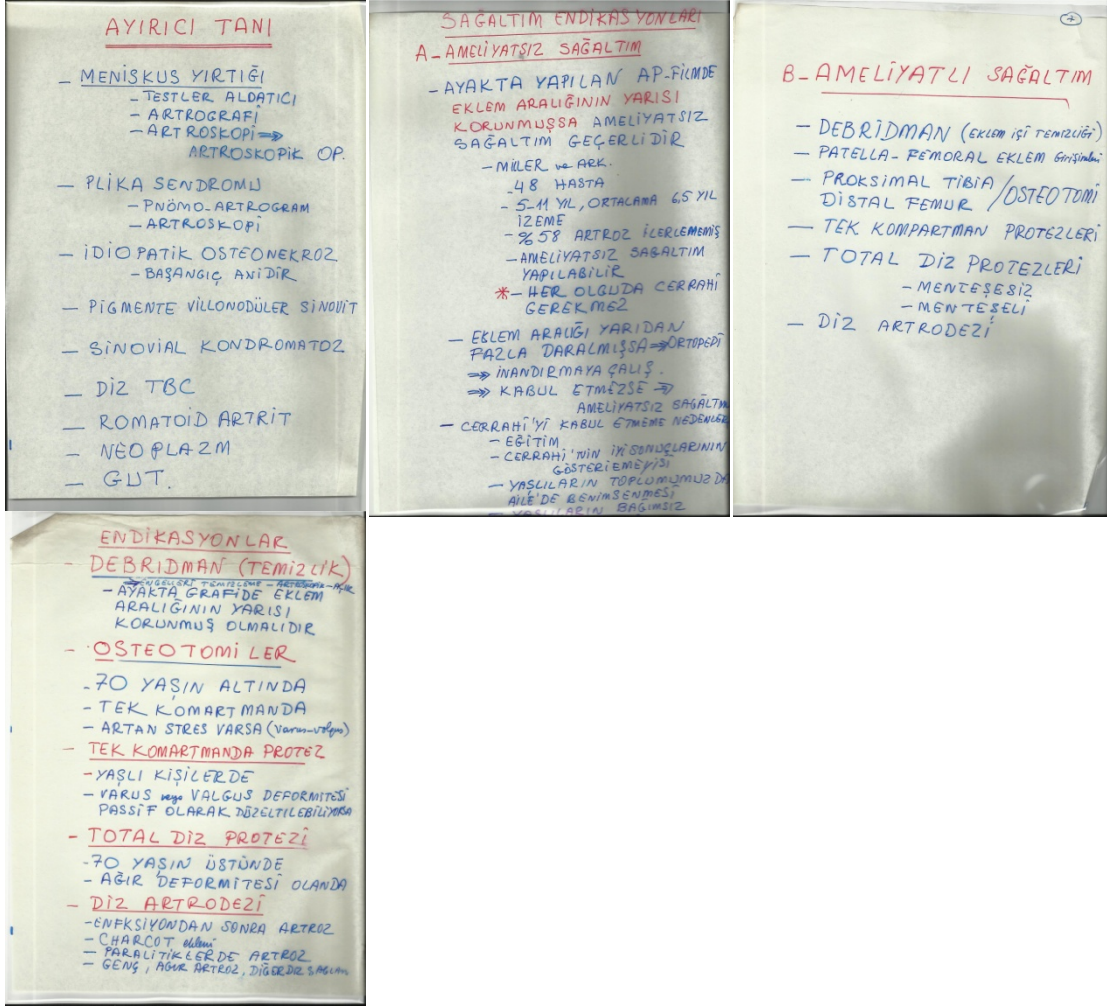 AYIRICI TANI
- MENİSKUS YIRTIĞI
- TESTLER ALDATICI
- ARTROGRAFİ
- ARTROSKOPİ ⇒
ARTROSKOPİK OP.
- PLİKA SENDROMU
- PNÖMO-ARTROGRAM
- ARTROSKOPİ
- İDİOPATİK OSTEONEKROZ
- BAŞANGIÇ ANİDİR
- PİGMENTE VİLLONODÜLER SİNOVİT
- SİNOVİAL KONDROMATOZ
- DİZ TBC
- ROMATOİD ARTRİT
- NEOPLAZM
- GUT.
SAĞALTIM ENDİKASYONLARI
A- AMELİYATSIZ SAĞALTIM
- AYAKTA YAPILAN AP-FİLMDE
EKLEM ARALIĞININ YARISI
KORUNMUŞSA AMELİYATSIZ
SAĞALTIM GEÇERLİDİR
- MİLER ve ARK.
- 48 HASTA
- 5-11 YIL, ORTALAMA 6,5 YIL
İZEME
- %58 ARTROZ İLERLEMEMİŞ
- AMELİYATSIZ SAĞALTIM
YAPILABİLİR
* - HER OLGUDA CERRAHİ
GEREKMEZ
- EKLEM ARALIĞI YARIDAN
FAZLA DARALMIŞSA ⇒ ORTOPEDİ
⇒ İNANDIRMAYA ÇALIŞ.
⇒ KABUL ETMEZSE ⇒
AMELİYATSIZ SAĞALTIM
- CERRAHİ'Yİ KABUL ETMEME NEDENLER
- EĞİTİM
- CERRAHİ'NİN İYİ SONUÇLARININ
GÖSTERİEMEYİSİ
- YAŞLILARIN TOPLUMUMUZDA
AİLE'DE BENİMSENMESİ
- YAŞLILARIN BAĞIMSIZ
4
B- AMELİYATLI SAĞALTIM
- DEBRİDMAN (EKLEM İÇİ TEMİZLİĞİ)
- PATELLA-FEMORAL EKLEM Girişimleri
- PROKSİMAL TİBİA /OSTEOTOMİ
DİSTAL FEMUR
- TEK KOMPARTMAN PROTEZLERİ
- TOTAL DİZ PROTEZLERİ
- MENTEŞESİZ
- MENTEŞELİ
- DİZ ARTRODEZİ
ENDİKASYONLAR
- DEBRIDMAN (TEMİZLİK)
⇒ ENGELLERİ TEMİZLEME - ARTROSKOPİK - AÇIK
- AYAKTA GRAFİDE EKLEM
ARALIĞININ YARISI
KORUNMUŞ OLMALIDIR
- OSTEOTOMİLER
- 70 YAŞIN ALTINDA
- TEK KOMARTMANDA
- ARTAN STRES VARSA (varus-valgus)
- TEK KOMARTMANDA PROTEZ
- YAŞLI KİŞİLERDE
- VARUS veya VALGUS DEFORMİTESİ
PASSİF OLARAK DÜZELTİLEBİLİYORSA
- TOTAL DİZ PROTEZİ
- 70 YAŞIN ÜSTÜNDE
- AĞIR DEFORMİTESİ OLANDA
- DİZ ARTRODEZİ
- ENFKSİYONDAN SONRA ARTROZ
- CHARCOT eklemi
- PARALİTİKLERDE ARTROZ
- GENÇ, AĞIR ARTROZ, DİĞER DİZ SAĞLAM